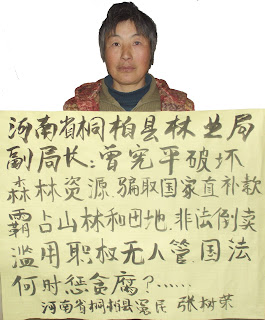 河南省桐柏县林业局
副局长:曾宪平破坏
森林资源.骗取国家直补款
霸占山林和田地.非法倒卖
滥用职权无人管.国法
何时惩贪腐?......
河南省桐柏县冤民 张树荣